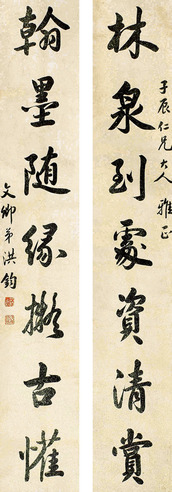 子辰仁兄大人 雅正
林泉到處資清賞
翰墨随緣擬古懽
文卿弟洪鈞